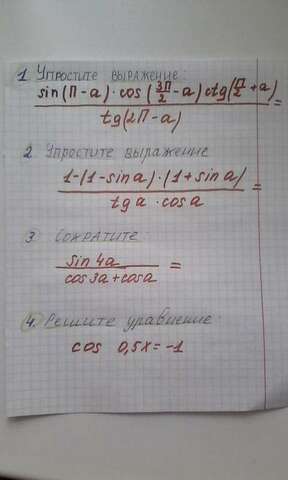 1 Упростите выражение:
sin(П-a)·cos(3П/2-a)ctg(П/2+a)
tg(2П-a) =
2. Упростите выражение
1-(1-sina)·(1+sina)
tga·cosa =
3. Сократите:
sin4a
cos3a+cosa =
4. Решите уравнение:
cos 0,5x=-1